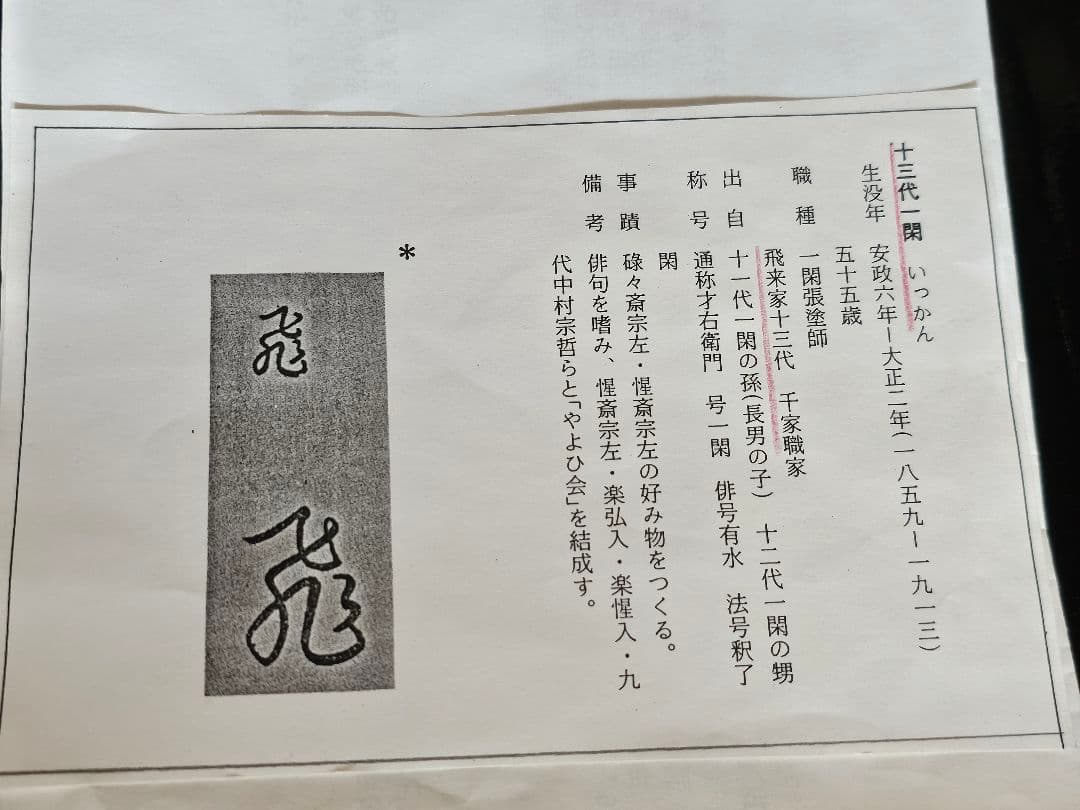 十三代一閑　いっかん
生没年　安政六年ー大正二年(一八五九ー一九一三)
五十五歳
職種　一閑張塗師
飛来家十三代　千家職家
出自　十一代一閑の孫(長男の子)　十二代一閑の甥
称号　通称才右衛門　号一閑　俳号有水　法号釈了
閑
事蹟　碌々斎宗左・惺斎宗左の好み物をつくる。
備考　俳句を嗜み、惺斎宗左・楽弘入・楽惺入・九
代中村宗哲らと「やよひ会」を結成す。
*
飛
飛